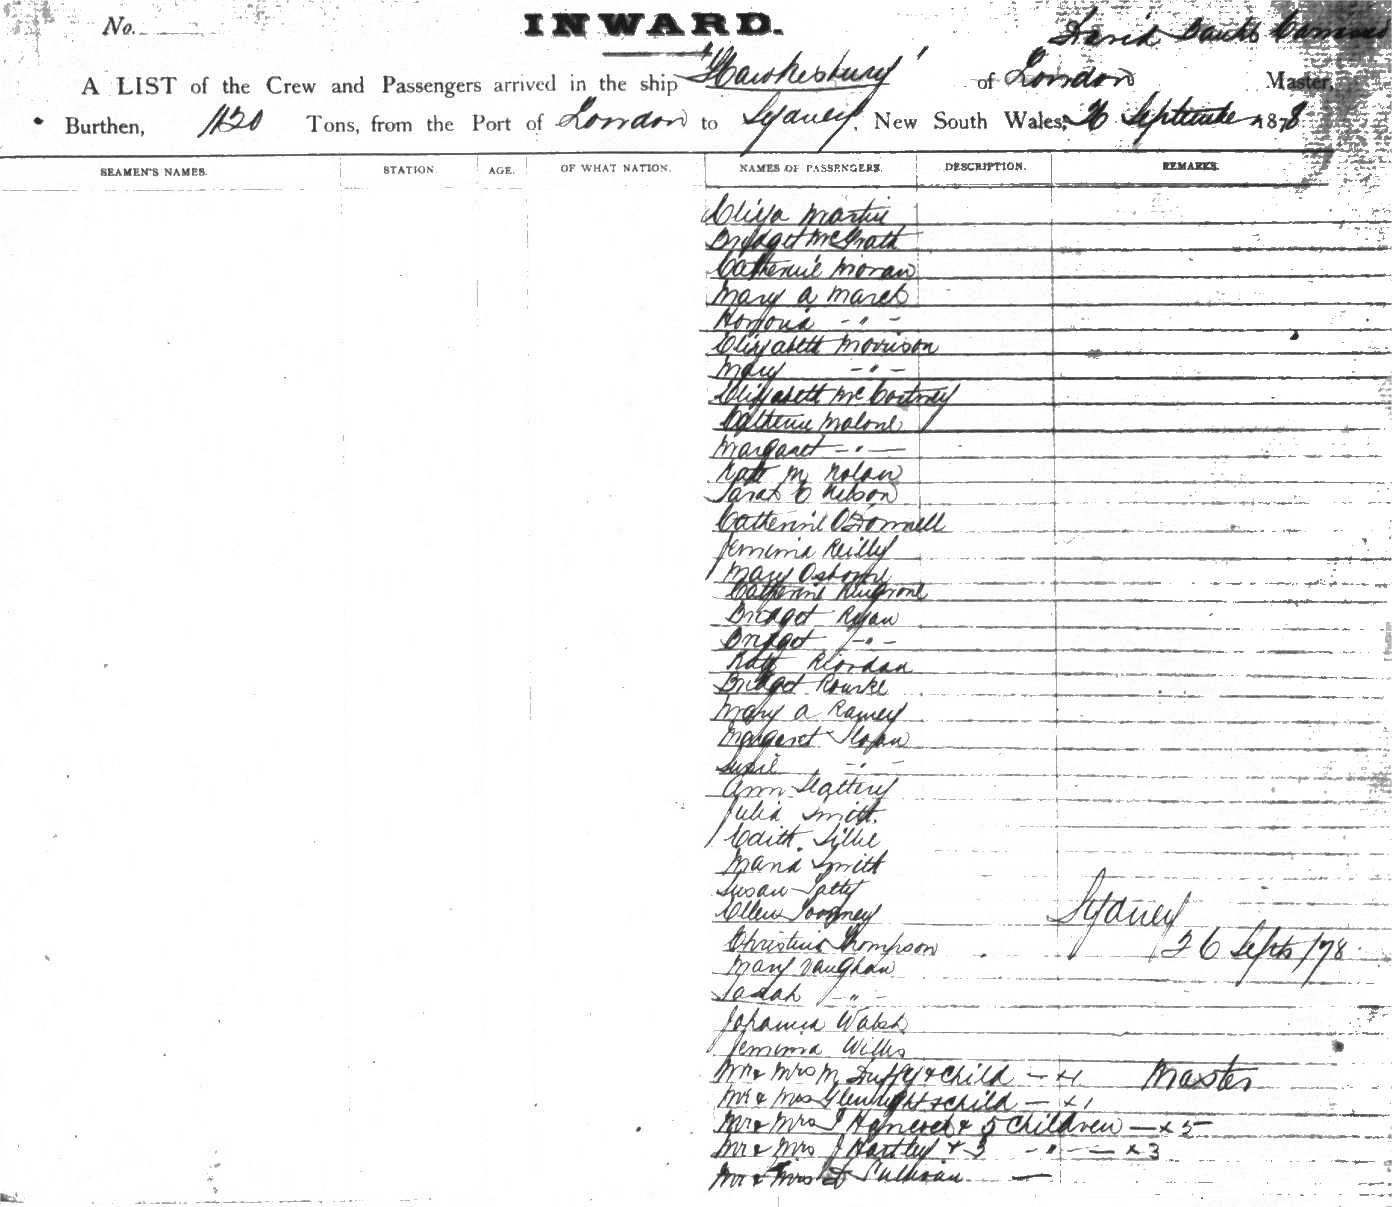 No.
INWARD.
David Banks
A LIST of the Crew and Passengers arrived in the ship "Hawkesbury" of London Master,
Burthen, 1120 Tons, from the Port of London to Sydney, New South Wales, 26 September 1878
SEAMEN'S NAMES. STATION. AGE. OF WHAT NATION. NAMES OF PASSENGERS. DESCRIPTION. REMARKS.
Eliza Martin
Bridget McGrath
Catherine Moran
Mary A March
Honoria - " -
Elizabeth Morrison
Mary - " -
Elizabeth McCortney
Catherine Malone
Margaret - " -
Kate M Nolan
Sarah E Nelson
Catherine O'Donnell
Jemima Reilly
Mary Osborne
Catherine
Bridget Ryan
Bridget - " -
Kate Riordan
Bridget Rourke
Mary A Ramey
Margaret Sloan
Susie - " -
Ann Slattery
Julia Smith.
Edith Sillie
Maria Smith
Susan
Ellen
Christina Thompson
Mary Vaughan
Sarah - " -
Johanna Walsh
Jemima Willis
Mr & Mrs M Duffy & Child - x 1
Mr & Mrs Glenright & child - x 1
Mr & Mrs J Hancock & 5 Children - x 5
Mr & Mrs J Hartley & 3 - " - x 3
Mr & Mrs D Sullivan -
Sydney
26 Septr /78
Master